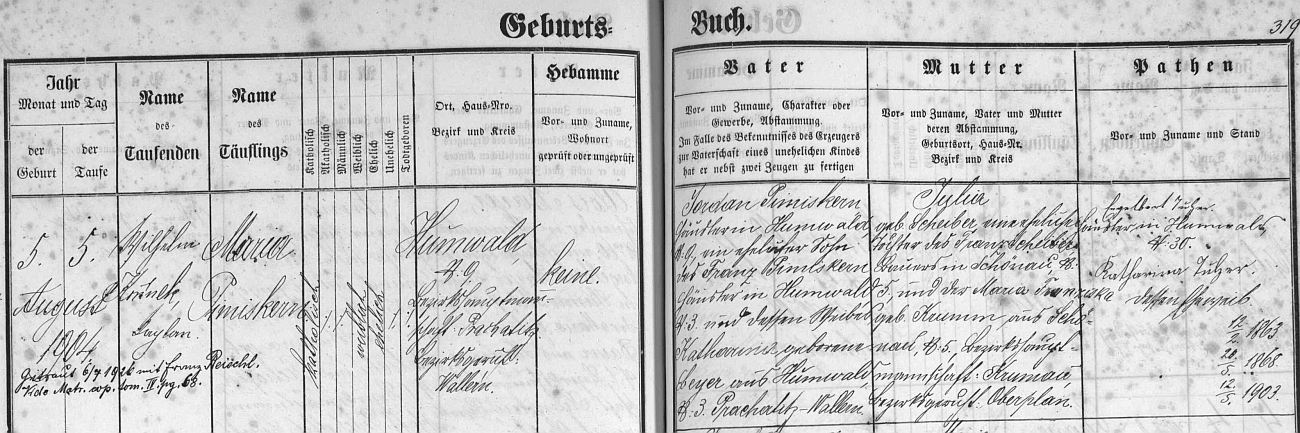 Geburts=
Buch.
319
Jahr
Monat und Tag
der Geburt
der Taufe
Name
des
Taufenden
Name
des
Täuflings
Katholisch
Akatholisch
Männlich
Weiblich
Ehelich
Unehelich
Todtgeboren
Ort, Haus-Nro.
Bezirk und Kreis
Hebamme
Vor- und Zuname,
Wohnort
geprüft oder ungeprüft
Vater
Vor- und Zuname, Charakter oder
Gewerbe, Abstammung.
Im Falle des Bekenntnisses des Erzeugers
zur Vaterschaft eines unehelichen Kindes
hat er nebst zwei Zeugen zu fertigen
Mutter
Vor- und Zuname, Vater und Mutter
deren Abstammung,
Geburtsort, Haus-Nr.
Bezirk und Kreis
Pathen
Vor- und Zuname und Stand
5.
5.
August
1904
Wilhelm
Kaplan
Maria
Pimiskern
katholisch
weiblich
ehelich
Humwald
N. 9,
Bezirkshauptmann-
schaft Prachatitz
Bezirksgericht
Wallern.
keine.
Getraut 6/7 1926 mit Franz Reischl.
Vide Matr. cop. tom. IV. pg. 68.
Jordan Pimiskern
Häusler in Humwald
N. 9, ein ehelicher Sohn
des Franz Pimiskern
Häusler in Humwald
N. 3. und dessen Weibes
Katharina geborene
aus Humwald,
N. 3. Prachatitz-Wallern.
Julia
geb. Scheiber, uneheliche
Tochter des Franz Scheiber
Bauers in Schönau, N.
5. und der Maria Franziska
geb. Krumm aus Schö-
nau, N. 5. Bezirkshaupt-
mannschaft: Krumau,
Bezirksgericht: Oberplan.
Engelbert
Häusler in Humwald
N. 30.
Katharina
dessen Eheweib.
12/2. 1863
20/5. 1868
12/5. 1903